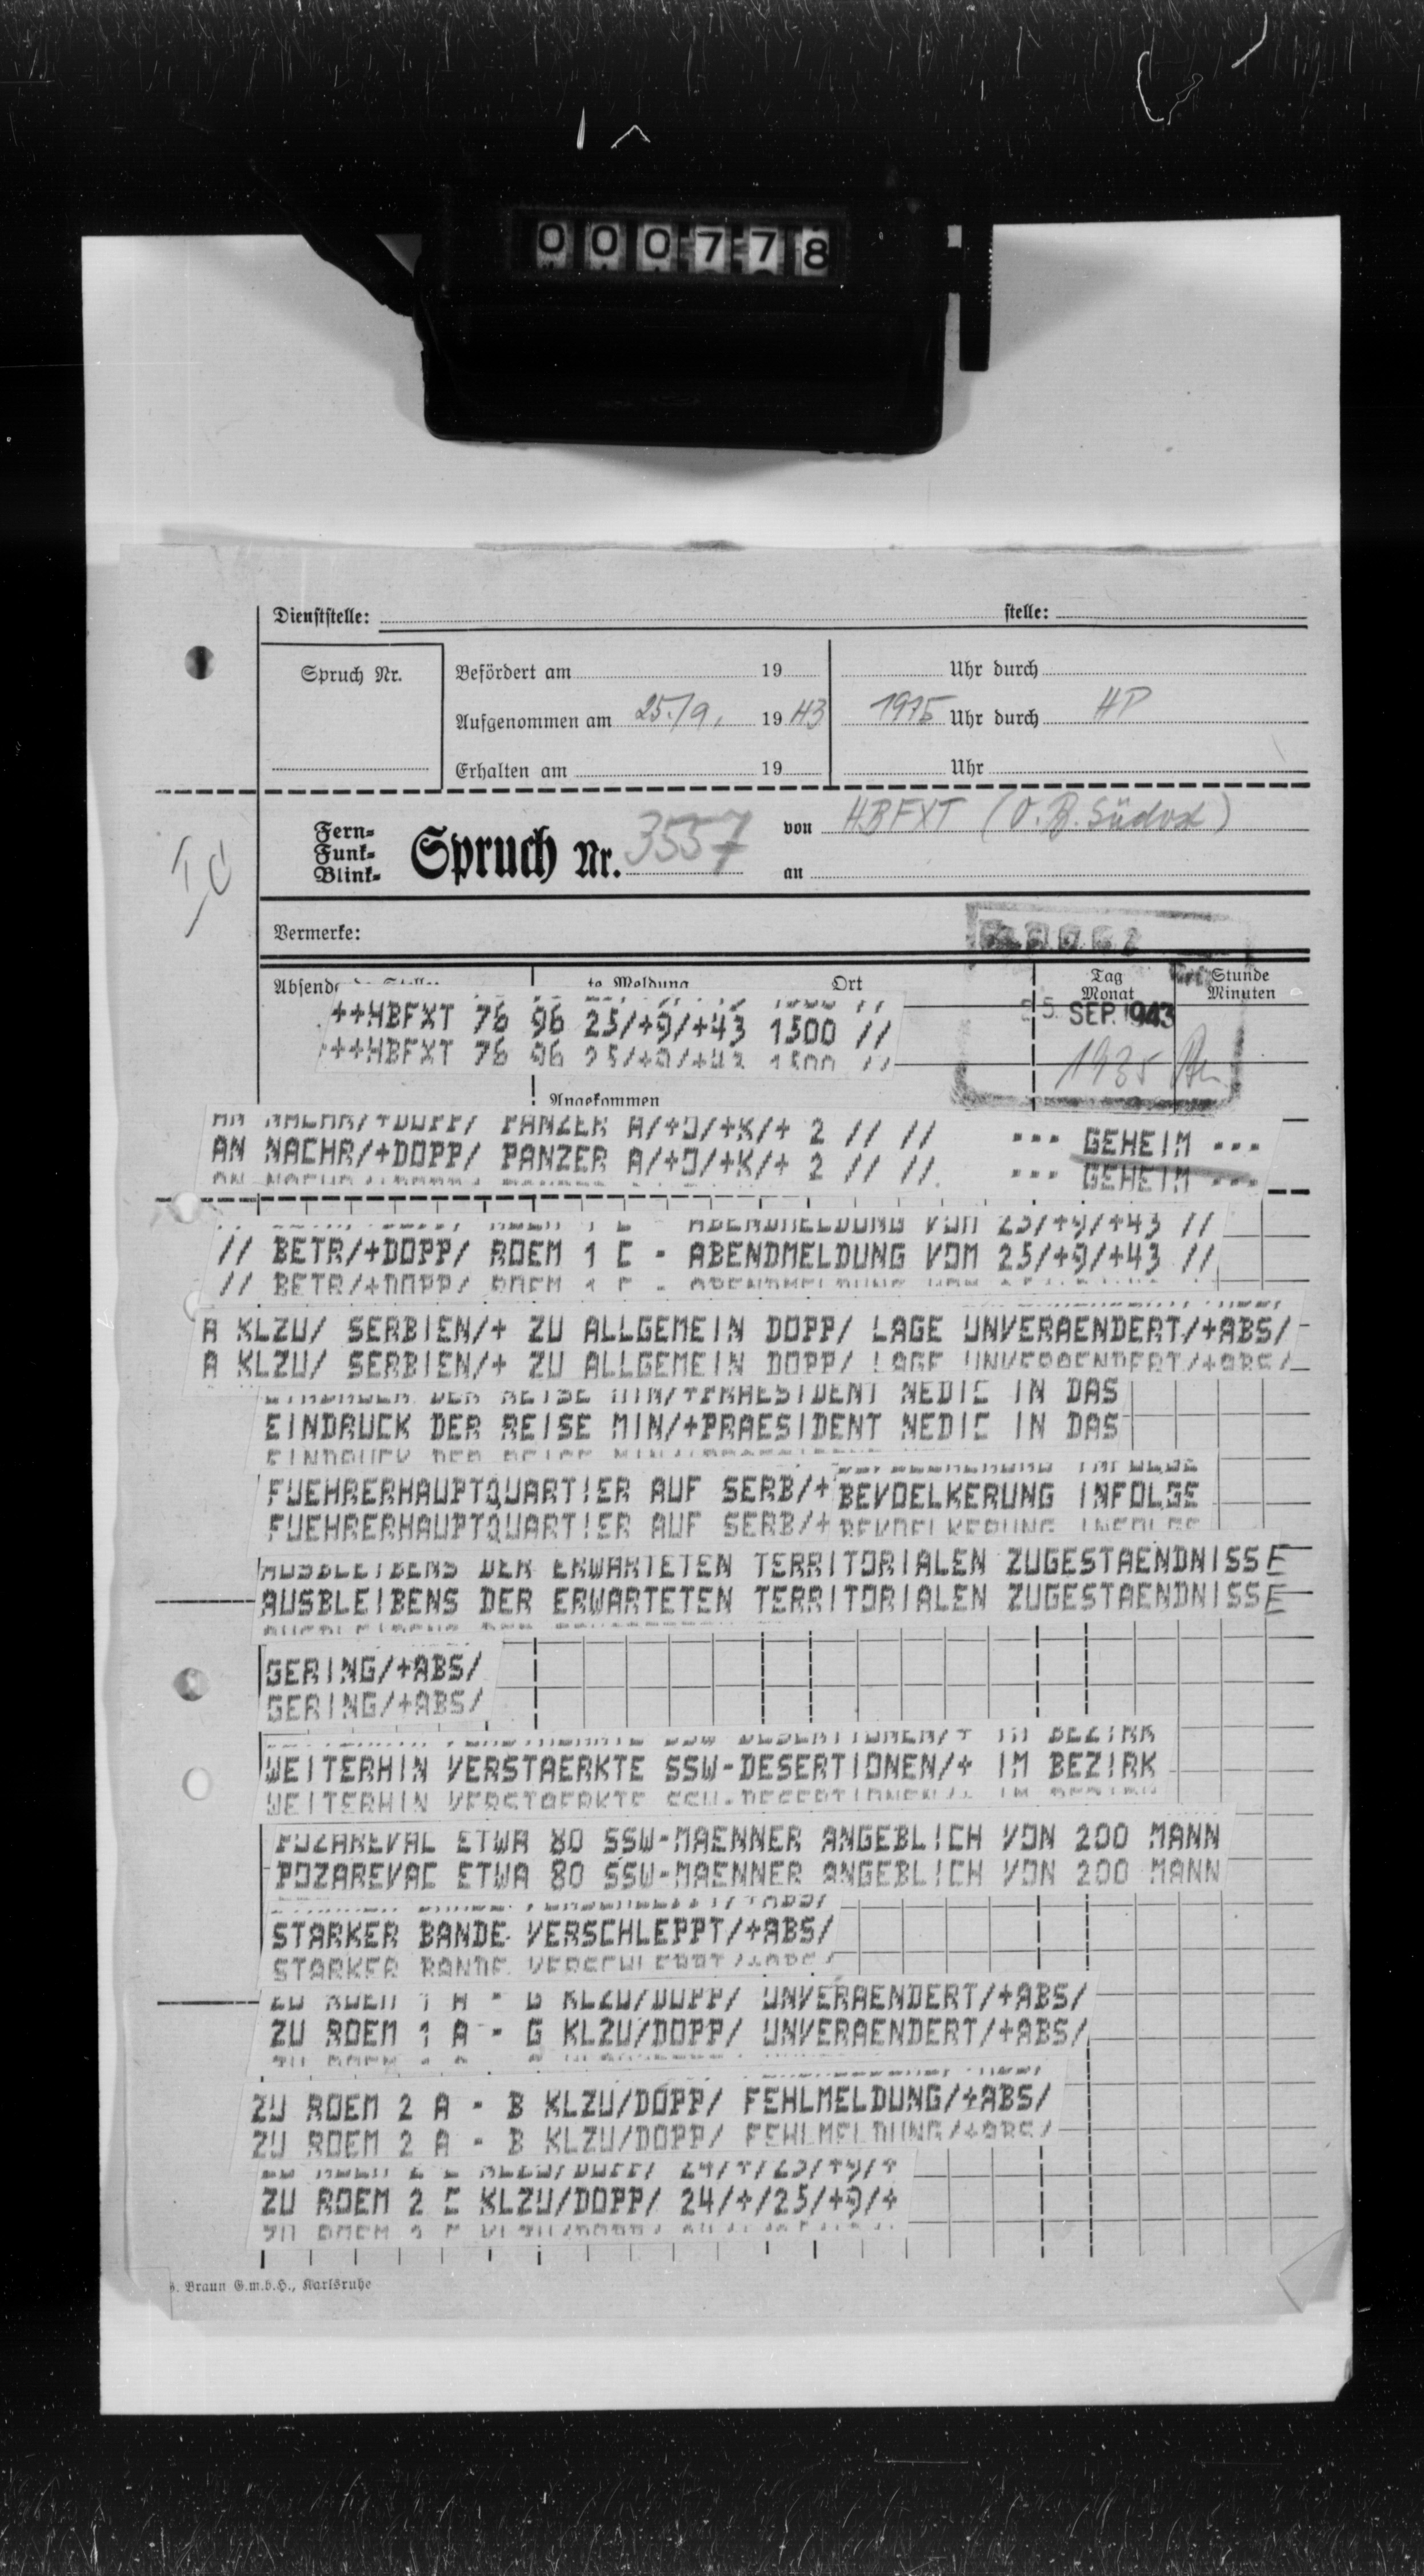 000778
Dienststelle: stelle:
Spruch Nr.
Befördert am 19 Uhr durch
Aufgenommen am 25./9. 19 43 1915 Uhr durch HP
Erhalten am 19 Uhr
Fern-
Funk-
Blink-
Spruch Nr. 3557
von HBFXT (O.B. Südost)
an
Ic
Vermerke:
Ort
Tag
Monat
Stunde
Minuten
25. SEP. 1943
1935
++HBFXT 76 96 25/+9/+43 1500 //
Angekommen
AN NACHR/+DOPP/ PANZER A/+O/+K/+ 2 // // --- GEHEIM ---
// BETR/+DOPP/ ROEM 1 C - ABENDMELDUNG VOM 25/+9/+43 //
A KLZU/ SERBIEN/+ ZU ALLGEMEIN DOPP/ LAGE UNVERAENDERT/+ABS/
EINDRUCK DER REISE MIN/+PRAESIDENT NEDIC IN DAS
FUEHRERHAUPTQUARTIER AUF SERB/+ BEVOELKERUNG INFOLGE
AUSBLEIBENS DER ERWARTETEN TERRITORIALEN ZUGESTAENDNISSE
GERING/+ABS/
WEITERHIN VERSTAERKTE SSW-DESERTIONEN/+ IM BEZIRK
POZAREVAC ETWA 80 SSW-MAENNER ANGEBLICH VON 200 MANN
STARKER BANDE VERSCHLEPPT/+ABS/
ZU ROEM 1 A - G KLZU/DOPP/ UNVERAENDERT/+ABS/
ZU ROEM 2 A - B KLZU/DOPP/ FEHLMELDUNG/+ABS/
ZU ROEM 2 C KLZU/DOPP/ 24/+/25/+9/+
Braun G.m.b.H., Karlsruhe